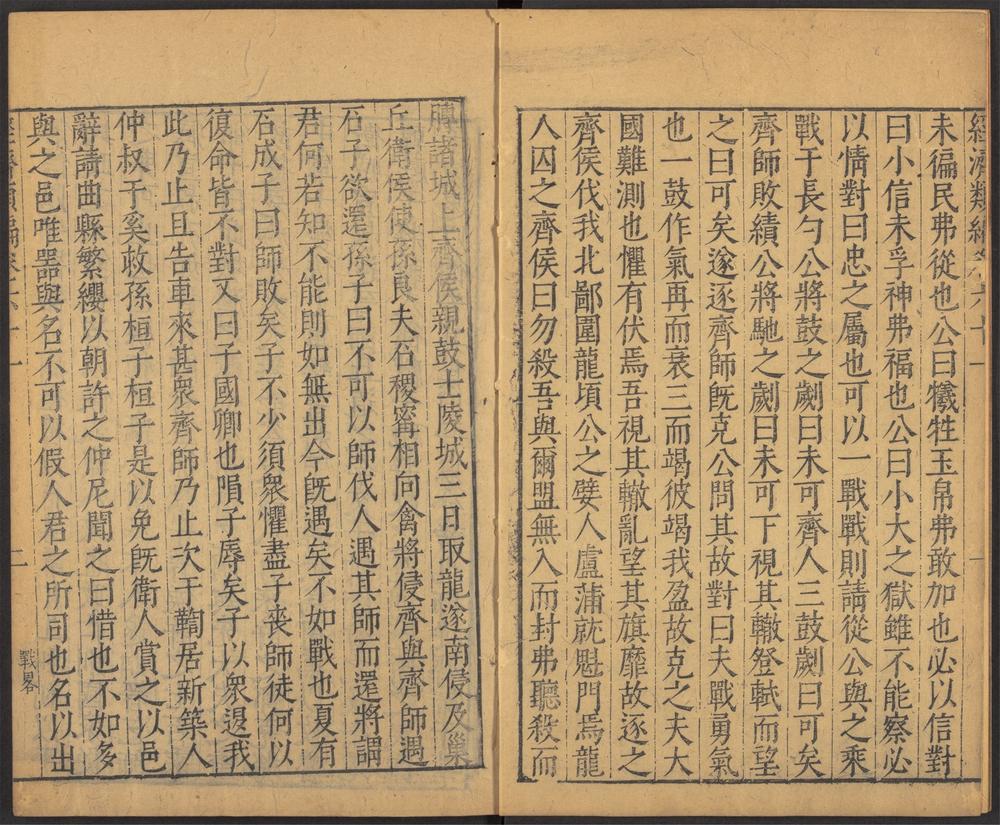 經濟類編
未徧民弗從也公曰犧牲玉帛弗敢加也必以信對
曰小信未孚神弗福也公曰小大之獄雖不能察必
以情對曰忠之屬也可以一戰戰則請從公與之乘
戰于長勺公將鼓之劌曰未可齊人三鼓劌曰可矣
齊師敗績公將馳之劌曰未可下視其轍登軾而望
之曰可矣遂逐齊師旣克公問其故對曰夫戰勇氣
也一鼓作氣再而衰三而竭彼竭我盈故克之夫大
國難測也懼有伏焉吾視其轍亂望其旗靡故逐之
齊侯伐我北鄙圍龍頃公之嬖人盧蒲就魁門焉龍
人囚之齊侯曰勿殺吾與爾盟無入而封弗聽殺而
膊諸城上齊侯親鼓士陵城三日取龍遂南侵及巢
丘衛侯使孫良夫石稷寗相向禽將侵齊與齊師遇
石子欲還孫子曰不可以師伐人遇其師而還將謂
君何若知不能則如無出今旣遇矣不如戰也夏有
石成子曰師敗矣子不少須衆懼盡子喪師徒何以
復命皆不對又曰子國卿也隕子辱矣子以衆退我
此乃止且告車來甚衆齊師乃止次于鞫居新築人
仲叔于奚救孫桓子桓子是以免旣衛人賞之以邑
辭請曲縣繁纓以朝許之仲尼聞之曰惜也不如多
與之邑唯器與名不可以假人君之所司也名以出
二
戰畧